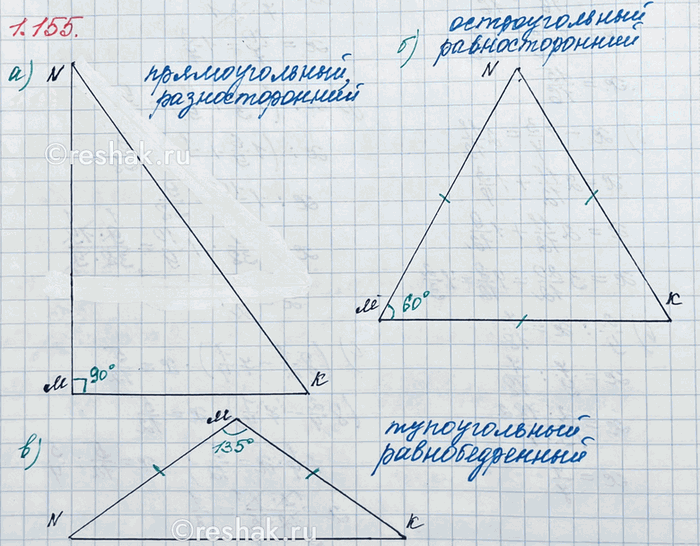 1.155.
а) N
прямоугольный,
разносторонний
©reshak.ru
M 90° K
б)
остроугольный
равносторонний
N
M 60° K
в)
M
135°
N K
тупоугольный
равнобедренный
©reshak.ru